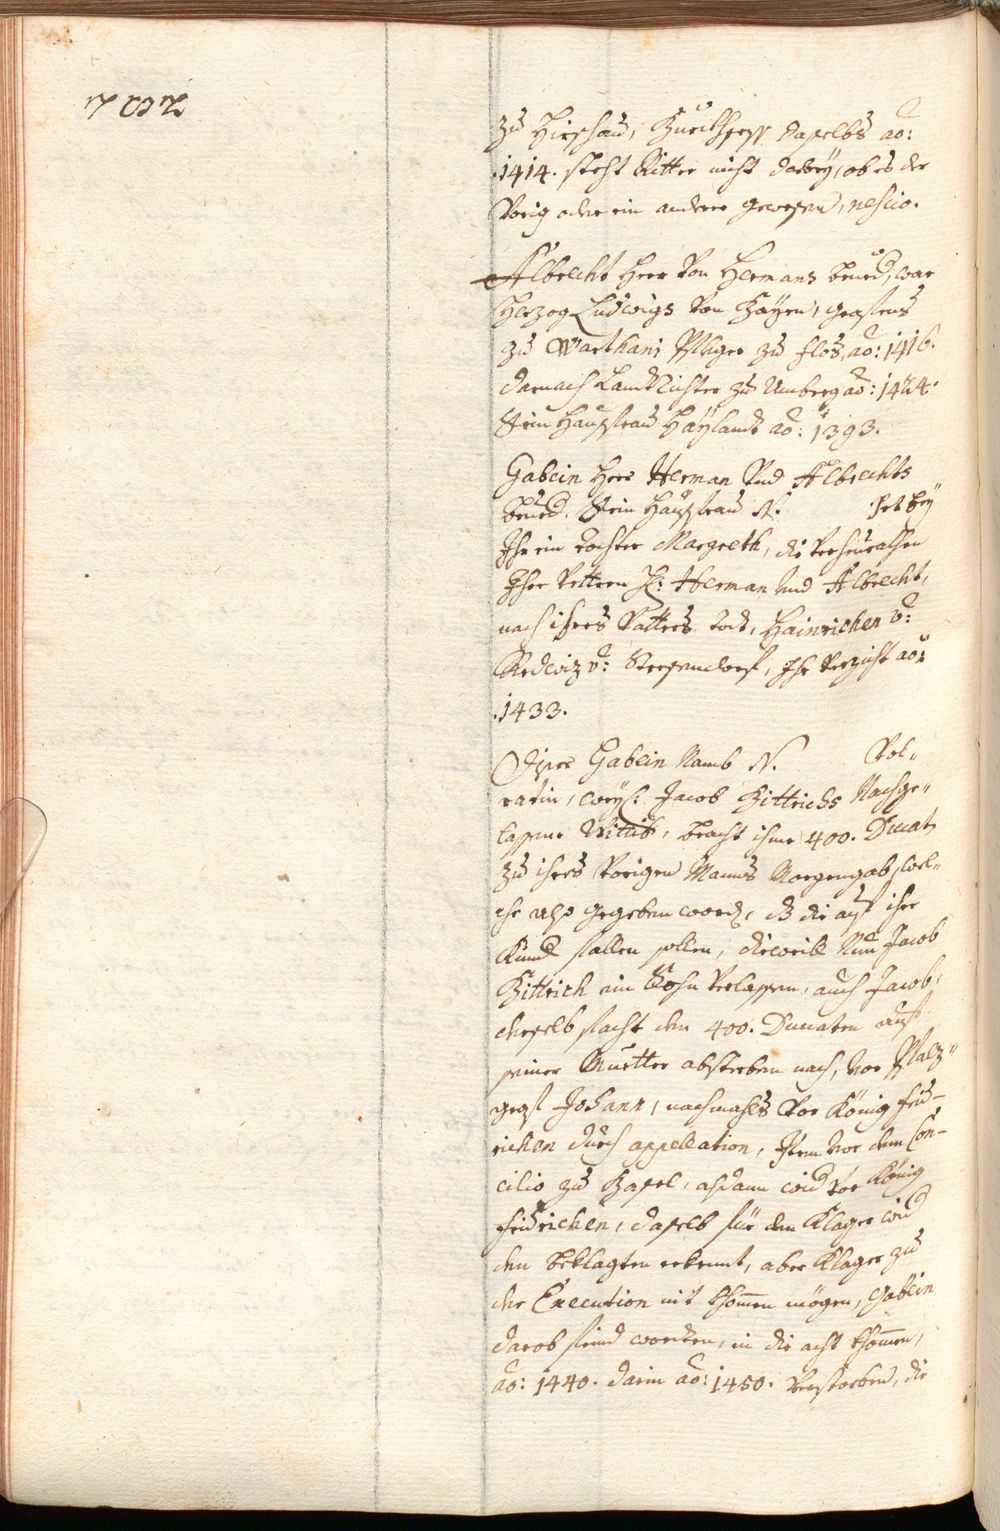 702
zu Hirschau, Zuuilhsess daselbs ao:
.1414. steht Ritter nicht darbey, ob es der
Vorig oder ein anderer gewesen, nescio.
Albrecht Herr Von Hermans brued, war
Herzog Ludwigs Von Bayrn, Grafens
zu Marthani Pfleger zu Flos, ao: 1416.
darnach Landrichter zu Amberg ao: 1424.
Sein Hausfrau Haylandt ao: 1393.
Gabein Herr Herman Vnd Albrechts
brued. Sein Hausfrau N. het bey
Ihr ein tochter Margreth, die verheurathen
Ihre Vettern H: Herman vnd Albrecht,
nach ihres Vatters tod, Hainrichen v:
Redwiz v: Tresendorf, Ihr Verzicht ao:
.1433.
Diser Gabein Namb N. Vol-
ratin, weyl: Jacob Zittrichs Nachge-
lassne Wittib, bracht ihme 400. Ducat
zu ihres Vorigen Manns Morgengab, wel-
che also gegeben word, dz die auf ihre
Kinnd fallen sollen, dieweil Nun Jacob
Zittrich ein Sohn Verlassen, auch Jacob,
derselb facht den 400. Ducaten auf
seiner Muetter absterben nach, vor Pfalz-
graf Johann, nachmahls Vor König Frid-
richen durch appellation, Item vor dem Con-
cilio zu Basel, alsdann wid Vor König
Fridrichen, daselb für den Klager wid
den beklagten erkennt, aber Klager zu
der Execution nit khommen mögen, Gabein
darob feind worden, in die acht khommen,
ao: 1440. darin ao: 1450. Verstorben, die